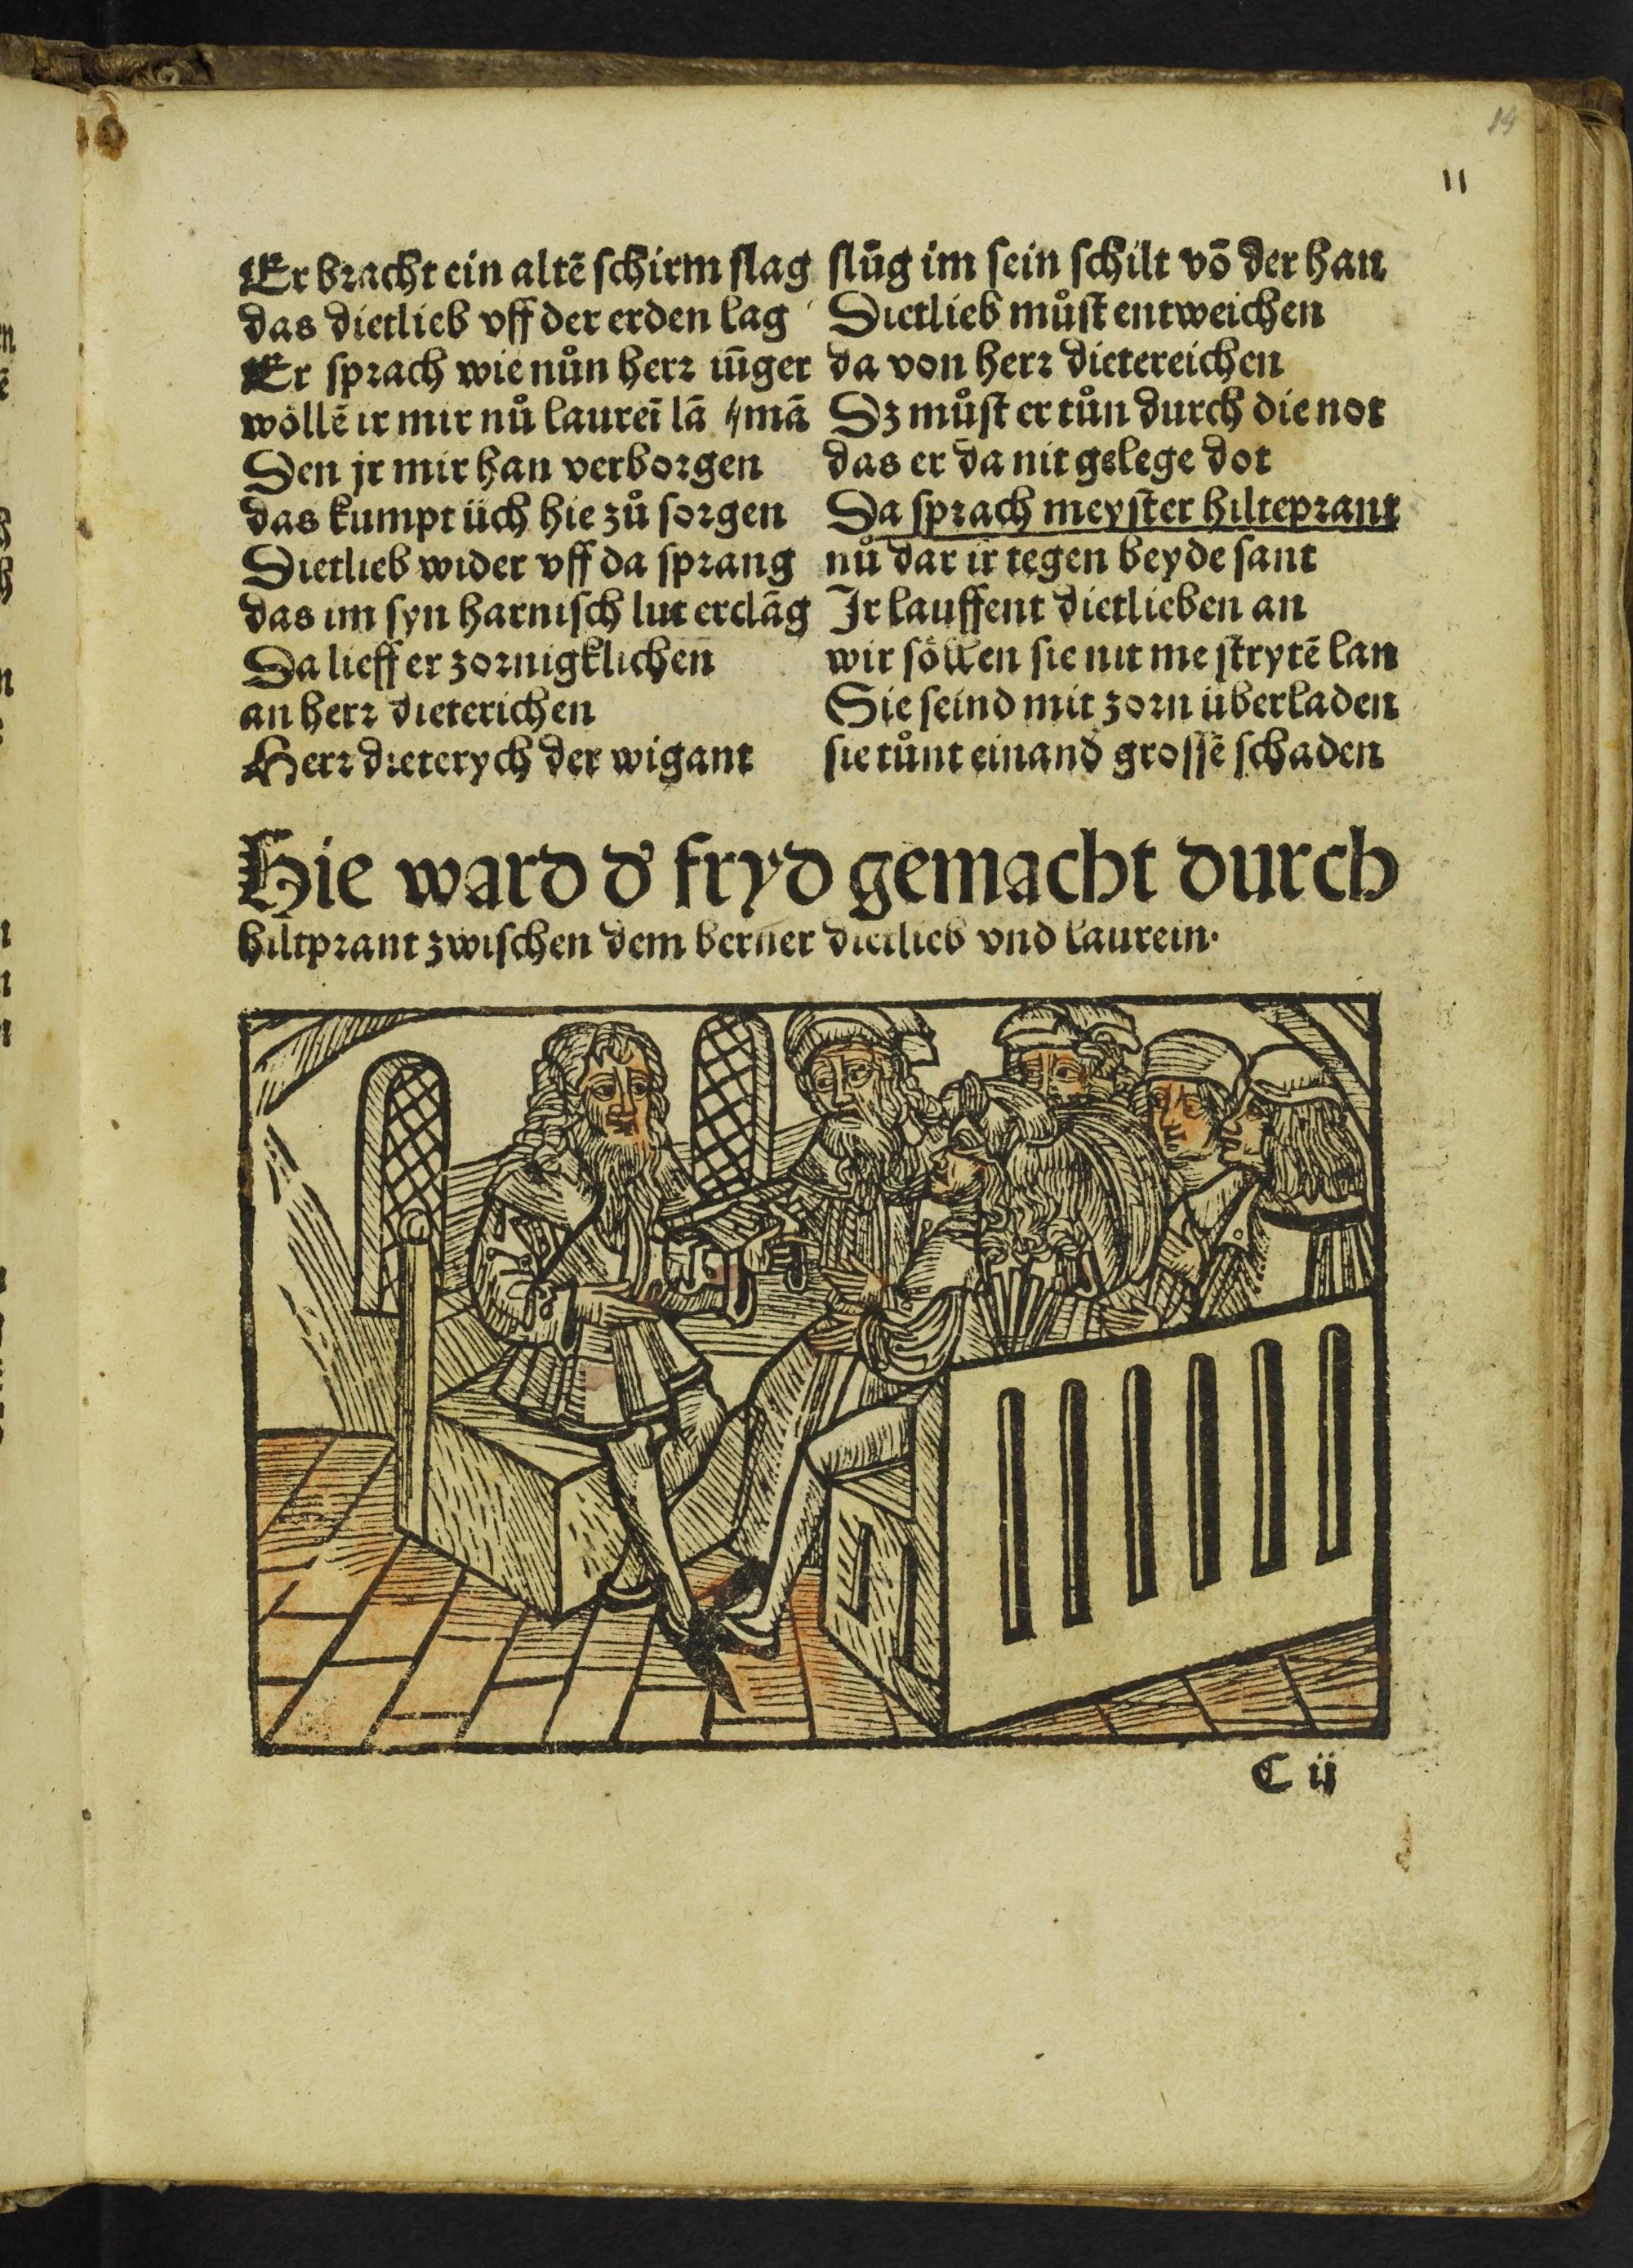 14
11
Er bracht ein altē schirm slag
das dietlieb vff der erden lag
Er sprach wie nůn herr iūger
wöllē ir mir nů laureī lā mā
Den jr mir han verborgen
das kumpt üch hie zů sorgen
Dietlieb wider vff da sprang
das im syn harnisch lut erclāg
Da lieff er zornigklichen
an herr dieterichen
Herr dieterych der wigant
slůg im sein schilt vō der han
Dietlieb můst entweichen
da von herr dietereichen
Dz můst er tůn durch die not
das er da nit gelege dot
Da sprach meyster hilteprant
nů dar ir tegen beyde sant
Ir lauffent dietlieben an
wir söllen sie nit me strytē lan
Sie seind mit zorn überladen
sie tůnt einand̛ grossē schaden
Hie ward d̛ fryd gemacht durch
hiltprant zwischen dem berner dietlieb vnd laurein.
C ij